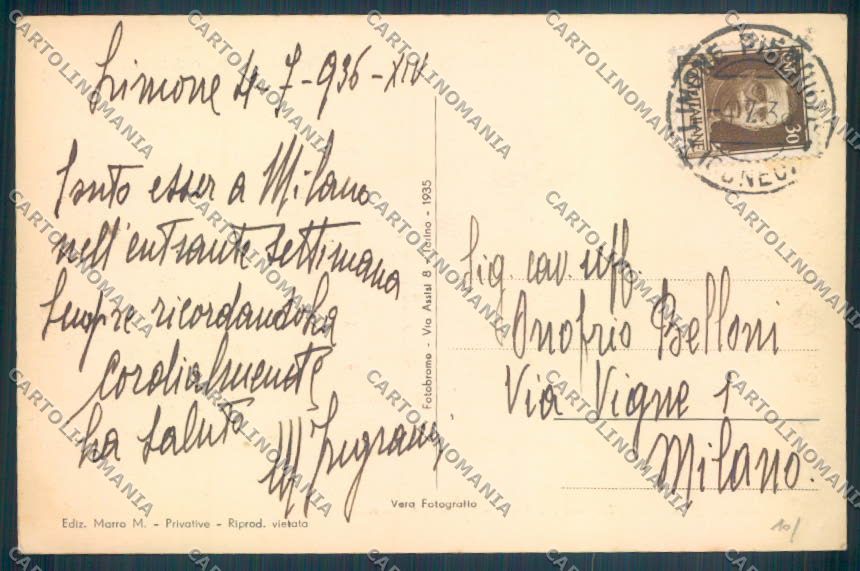 Limone 4-7-936-XIV
Conto esser a Milano
nell'entrante settimana
Sempre ricordandola
Cordialmente
La saluto
M Ingrami
Sig. cav. uff.
Onofrio Belloni
Via Vigne 1
Milano.
Fotobromo - Via Assisi 8 - Torino - 1935
Vera Fotografia
Ediz. Marro M. - Privative - Riprod. vietata
LIMONE PIEMONTE
(CUNEO)
30
10/
CARTOLINOMANIA